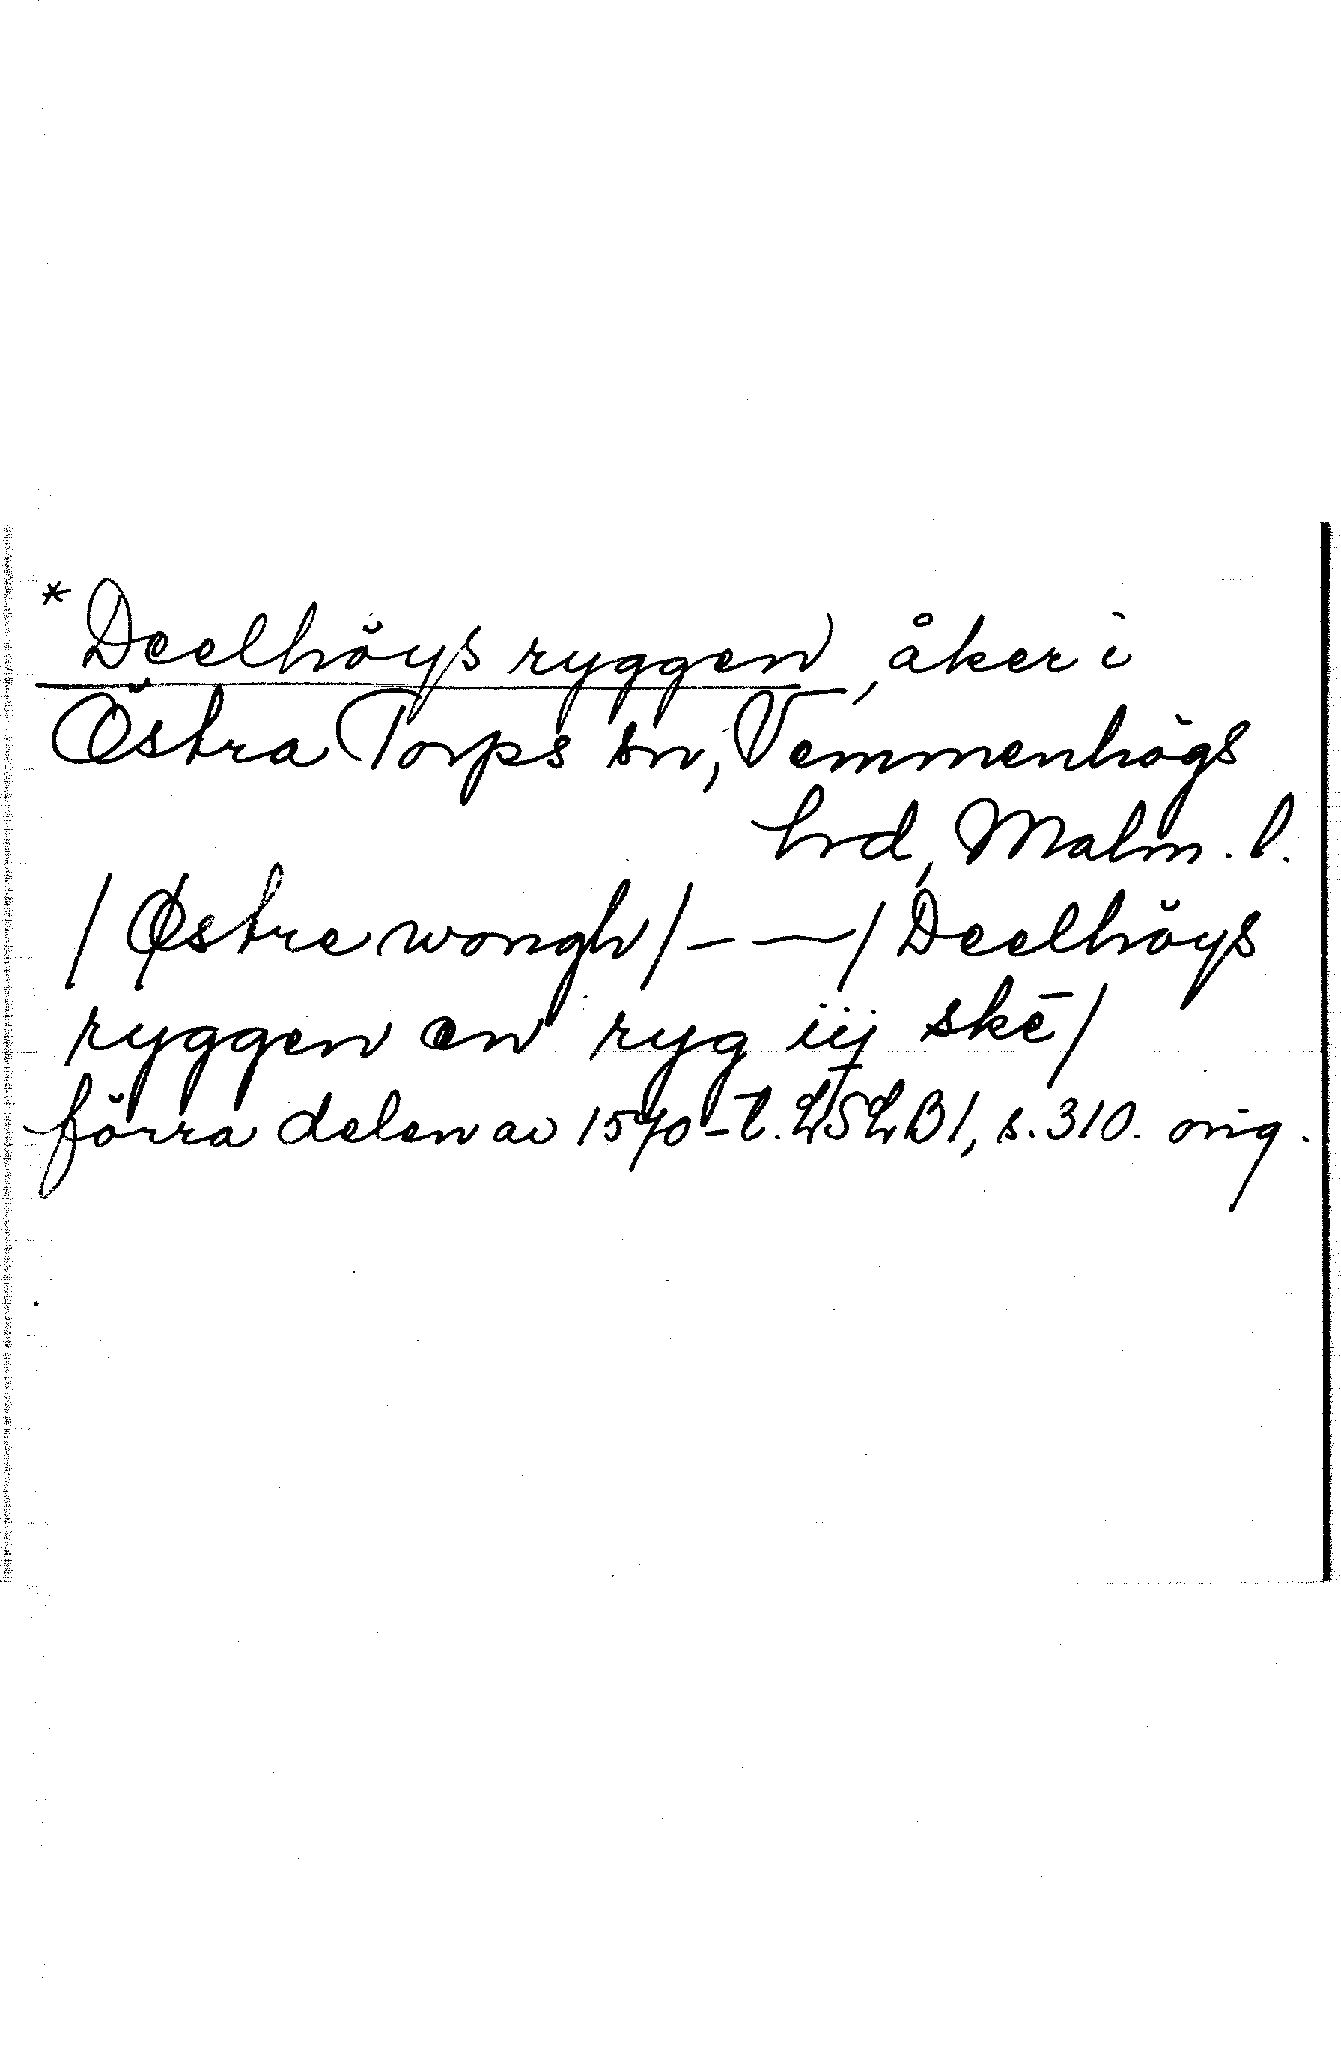 * Deelhöys ryggen, åker i
Östra Torps sn, Vemmenhögs
hrd, Malm. l.
/ Østre wongh / – — / Deelhöys
ryggen en ryg iij skē /
förra delen av 1570-t. LSLB1, s. 310. orig.